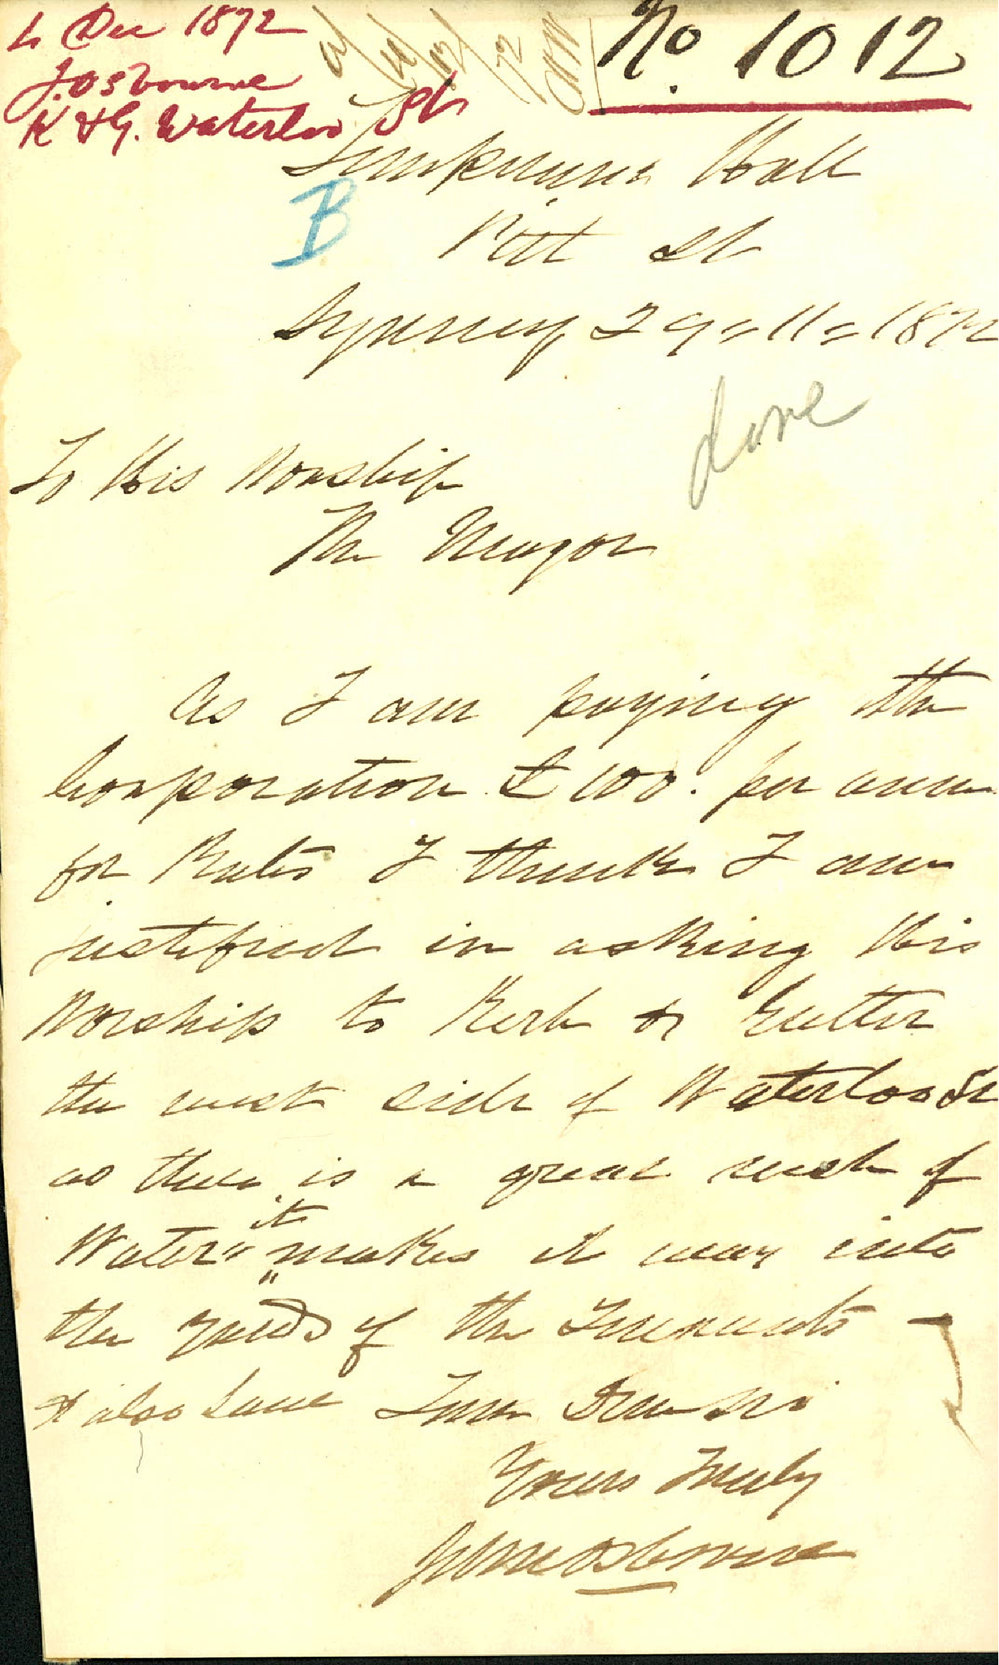 4 Dec 1872
J. Osbourne
K & G. Waterloo St
No. 1012
Temperance Hall
B
Pitt St
Sydney 29=11=1872
done
To His Worship
The Mayor
As I am paying the
Corporation £100. per ann
for Rates I think I am
justified in asking His
Worship to Kerb & Gutter
the west side of Waterloo St
as there is a great rush of
Water " it
" makes it way into
the yards of the Tenements
& also Lane I am Dear Sir
Yours Truly
John Osborne